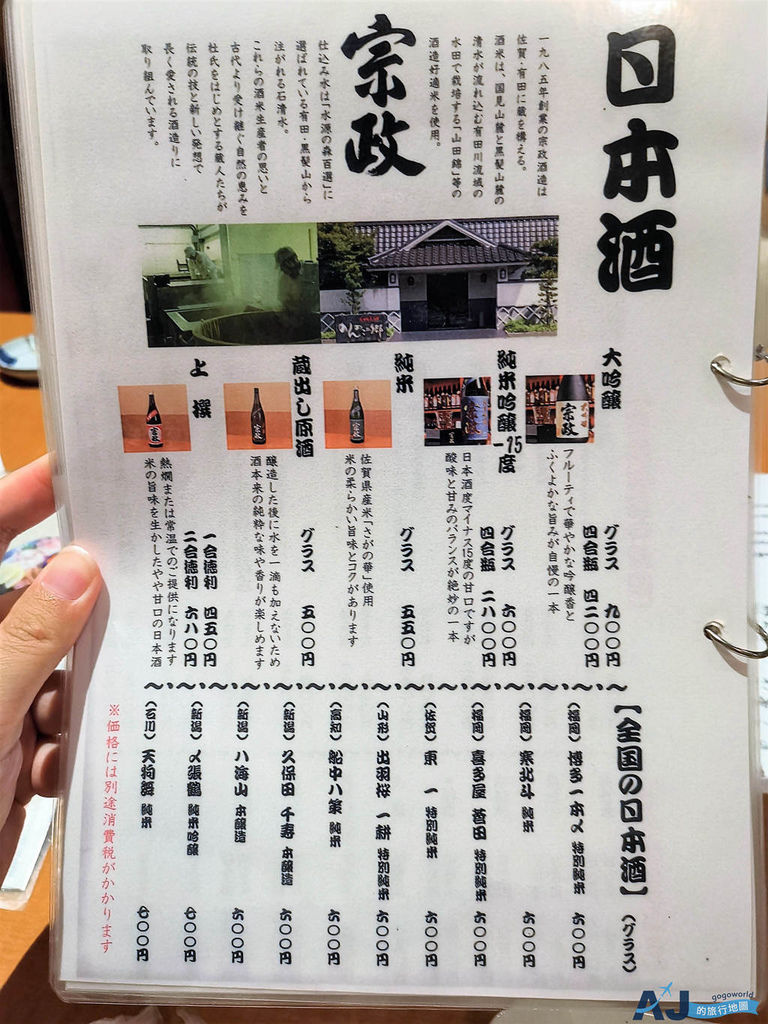 日本酒
宗政
一九八五年創業の宗政酒造は
佐賀・有田に蔵を構える。
酒米は、国見山麓と黒髪山麓の
清水が流れ込む有田川流域の
水田で栽培する「山田錦」等の
酒造好適米を使用。
仕込み水は「水源の森百選」に
選ばれている有田・黒髪山から
注がれる石清水。
これらの酒米生産者の思いと
古代より受け継ぐ自然の恵みを
杜氏をはじめとする蔵人たちが
伝統の技と新しい発想で
長く愛される酒造りに
取り組んでいます。
大吟醸
グラス 九〇〇円
四合瓶 四二〇〇円
フルーティで華やかな吟醸香と
ふくよかな旨みが自慢の一本
純米吟醸-15度
グラス 六〇〇円
四合瓶 二八〇〇円
日本酒度マイナス15度の甘口ですが
酸味と甘みのバランスが絶妙の一本
純米
グラス 五五〇円
佐賀県産米「さがの華」使用
米の柔らかい旨味とコクがあります
蔵出し原酒
グラス 五〇〇円
醸造した後に水を一滴も加えないため
酒本来の純粋な味や香りが楽しめます
上撰
一合徳利 四五〇円
二合徳利 六八〇円
熱燗または常温でのご提供になります
米の旨味を生かしたやや甘口の日本酒
【全国の日本酒】(グラス)
(福岡) 博多一本〆 特別純米 六〇〇円
(福岡) 寒北斗 純米 六〇〇円
(福岡) 喜多屋 蒼田 特別純米 六〇〇円
(佐賀) 東一 特別純米 六〇〇円
(山形) 出羽桜 一耕 特別純米 六〇〇円
(高知) 船中八策 純米 六〇〇円
(新潟) 久保田 千寿 本醸造 六〇〇円
(新潟) 八海山 本醸造 六〇〇円
(新潟) 〆張鶴 純米吟醸 七〇〇円
(石川) 天狗舞 純米 七〇〇円
※価格には別途消費税がかかります
AJ
gogoworld
的旅行地圖